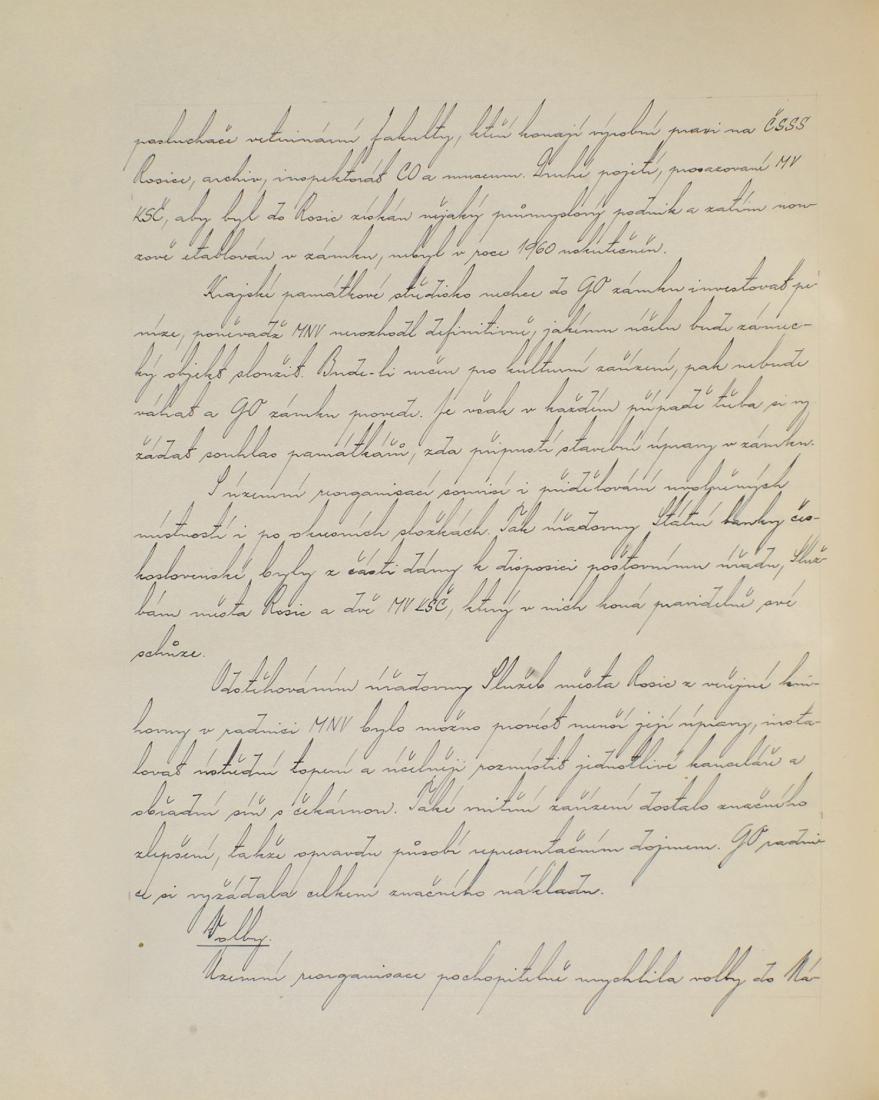 posluchače veterinární fakulty, kteří konají výrobní praxi na ČSSS
Rosice, archiv, inspektorát CO a museum. Druhé pojetí, prosazované MV
KSČ, aby byl do Rosic získán nějaký průmyslový podnik a zatím nou-
zově etablován v zámku, nebyl v roce 1960 uskutečněn.
Krajské památkové středisko nechce do GO zámku investovat pe-
níze, poněvadž MNV nerozhodl definitivně, jakému účelu bude zámec-
ký objekt sloužit. Bude-li určen pro kulturní zařízení, pak nebude
váhat a GO zámku provede. Je však v každém případě třeba si vy-
žádat souhlas památkářů, zda připustí stavební úpravy v zámku.
S územní reorganisací souvisí i přidělování uvolněných
místností i po okresních složkách. Tak úřadovny Státní banky čes-
koslovenské, byly z části dány k disposici poštovnímu úřadu, Služ-
bám města Rosic a dvě MV KSČ, který v nich koná pravidelně své
schůze.
Odstěhováním úřadovny Služeb města Rosic z veřejné kni-
hovny v radnici MNV bylo možno provést menší její úpravy, insta-
lovat ústřední topení a účelněji rozmístit jednotlivé kanceláře a
obřadní síň s čekárnou. Také vnitřní zařízení dostalo značného
zlepšení, takže opravdu působí representačním dojmem. GO radni-
ce si vyžádala celkem značného nákladu.
Volby.
Územní reorganisace pochopitelně urychlila volby do Ná-